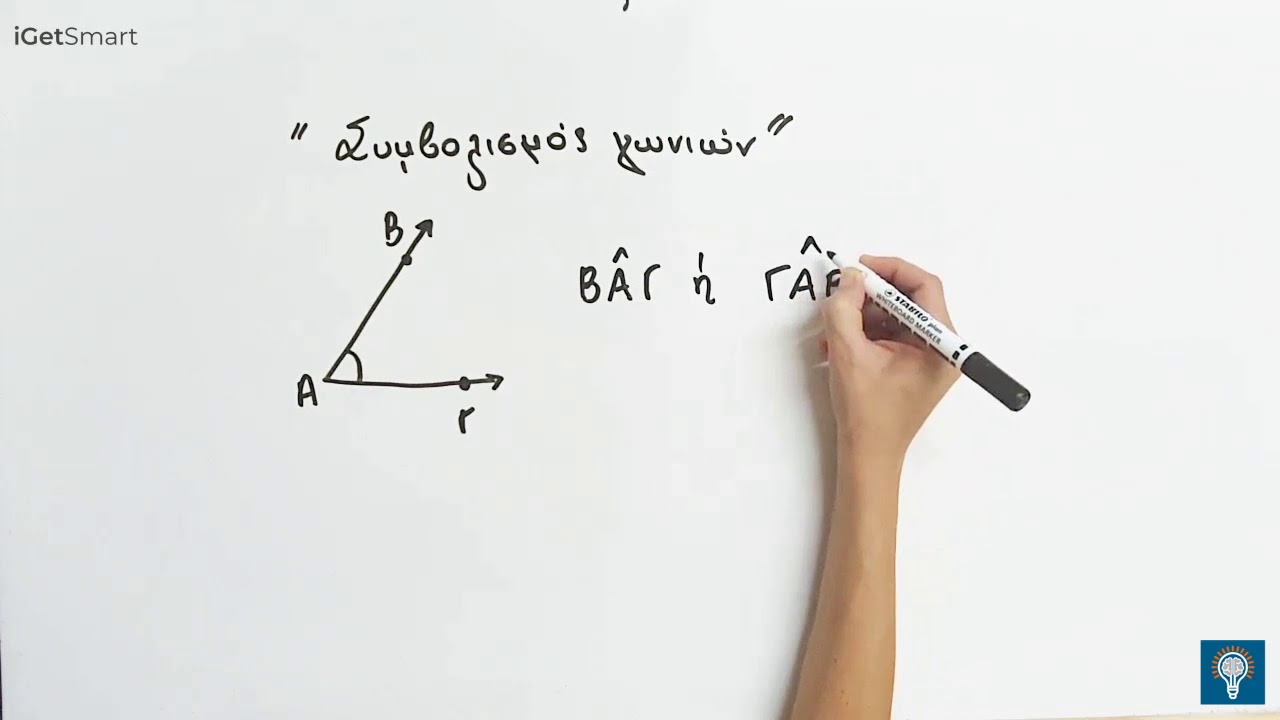 iGetSmart
" Συμβολισμός γωνιών "
B
A
Γ
BÂΓ ή ΓÂ
STABILO plan
WHITEBOARD MARKER